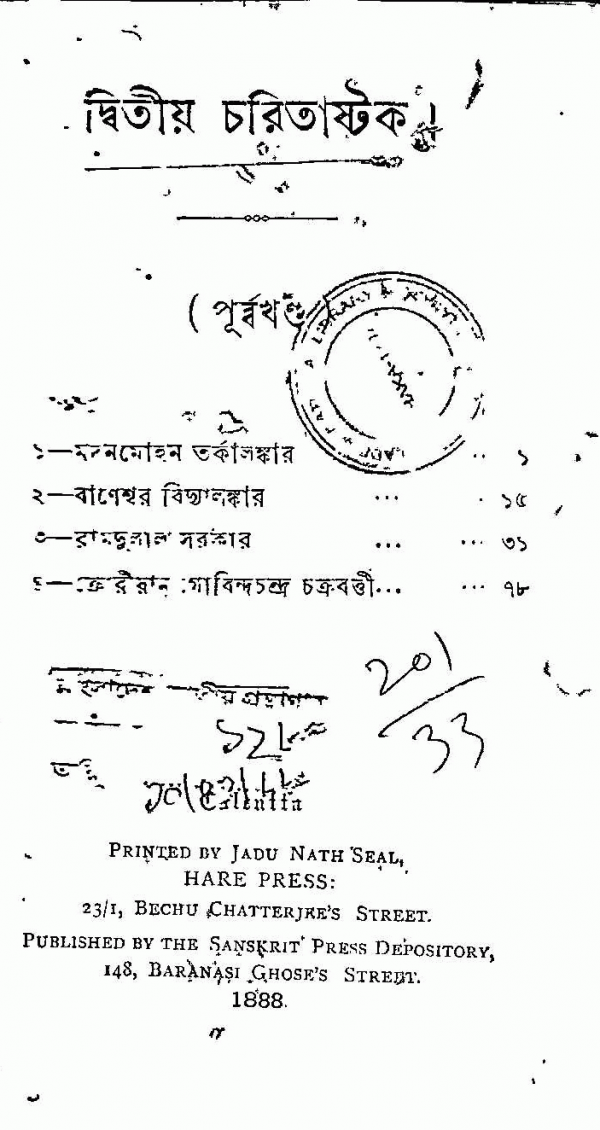 দ্বিতীয় চরিতাষ্টক।
(পূর্ব্বখণ্ড)
১—মদনমোহন তর্কালঙ্কার ·· ১
২—বাণেশ্বর বিদ্যালঙ্কার ··· · ১৫
৩—রামদুলাল সরকার ··· ··· ৩১
৪— গোবিন্দচন্দ্র চক্রবর্ত্তী··· ··· ৭৮
201/33
Calcutta
PRINTED BY JADU NATH SEAL,
HARE PRESS:
23/1, BECHU CHATTERJEE'S STREET.
PUBLISHED BY THE SANSKRIT PRESS DEPOSITORY,
148, BARANASI GHOSE'S STREET.
1888.